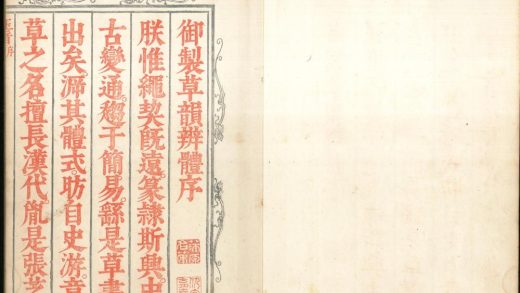 御製草韻辨體序
朕惟繩契旣遠。篆隸斯興。
古變通。趨于簡易。繇是草書
出矣。溯其體式。昉自史游。章
草之名擅長漢代。胤是張芝